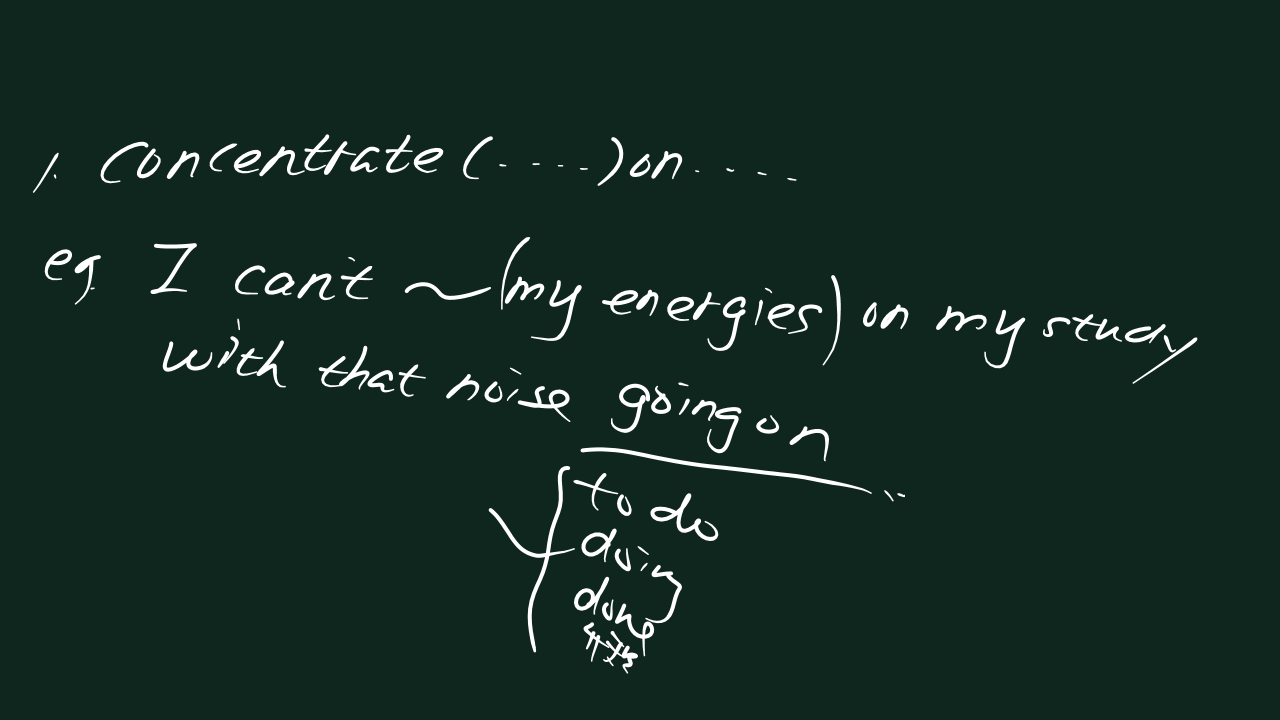 1. Concentrate (....) on.....
eg. I can't ~ (my energies) on my study
with that noise going on
to do
doing
done